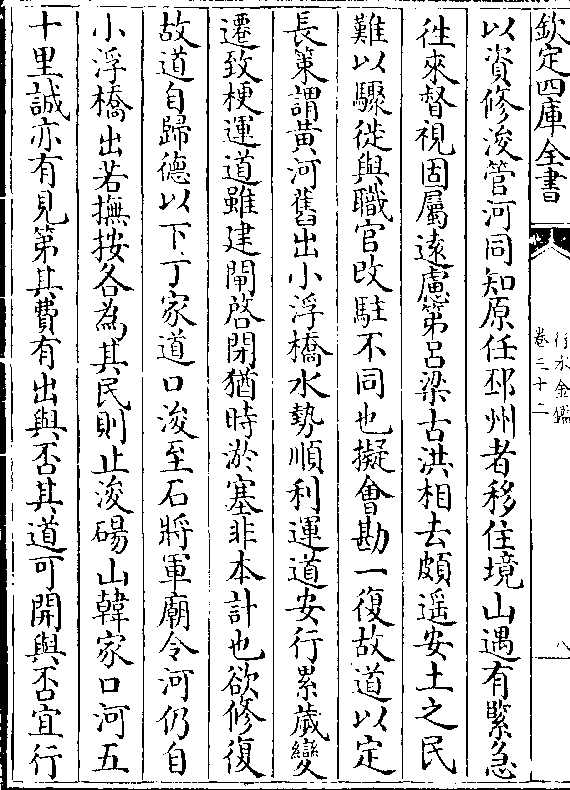 欽定四庫全書
行水金鑑
卷三十二
八
以資修浚管河同知原任邳州者移住境山遇有緊急
徃來督視固屬遠慮第吕梁古洪相去頗遥安土之民
難以驟徙與職官改駐不同也擬會勘一復故道以定
長策謂黄河舊出小浮橋水勢順利運道安行累歲變
遷致梗運道雖建閘啓閉猶時淤塞非本計也欲修復
故道自歸德以下丁家道口浚至石將軍廟令河仍自
小浮橋出若撫按各為其民則止浚碭山韓家口河五
十里誠亦有見第其費有出與否其道可開與否宜行